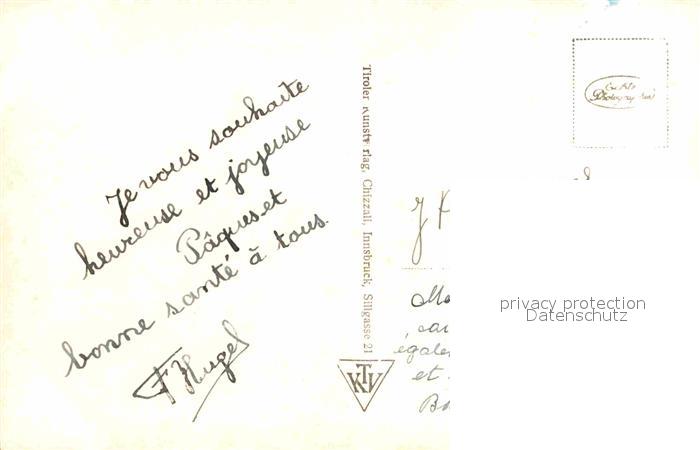 Je vous souhaite
heureuse et joyeuse
Pâques et
bonne santé à tous.
F. Hugel
Tiroler Kunstverlag, Chizzali, Innsbruck, Sillgasse 21
KTV
Echte
J
et
privacy protection
Datenschutz